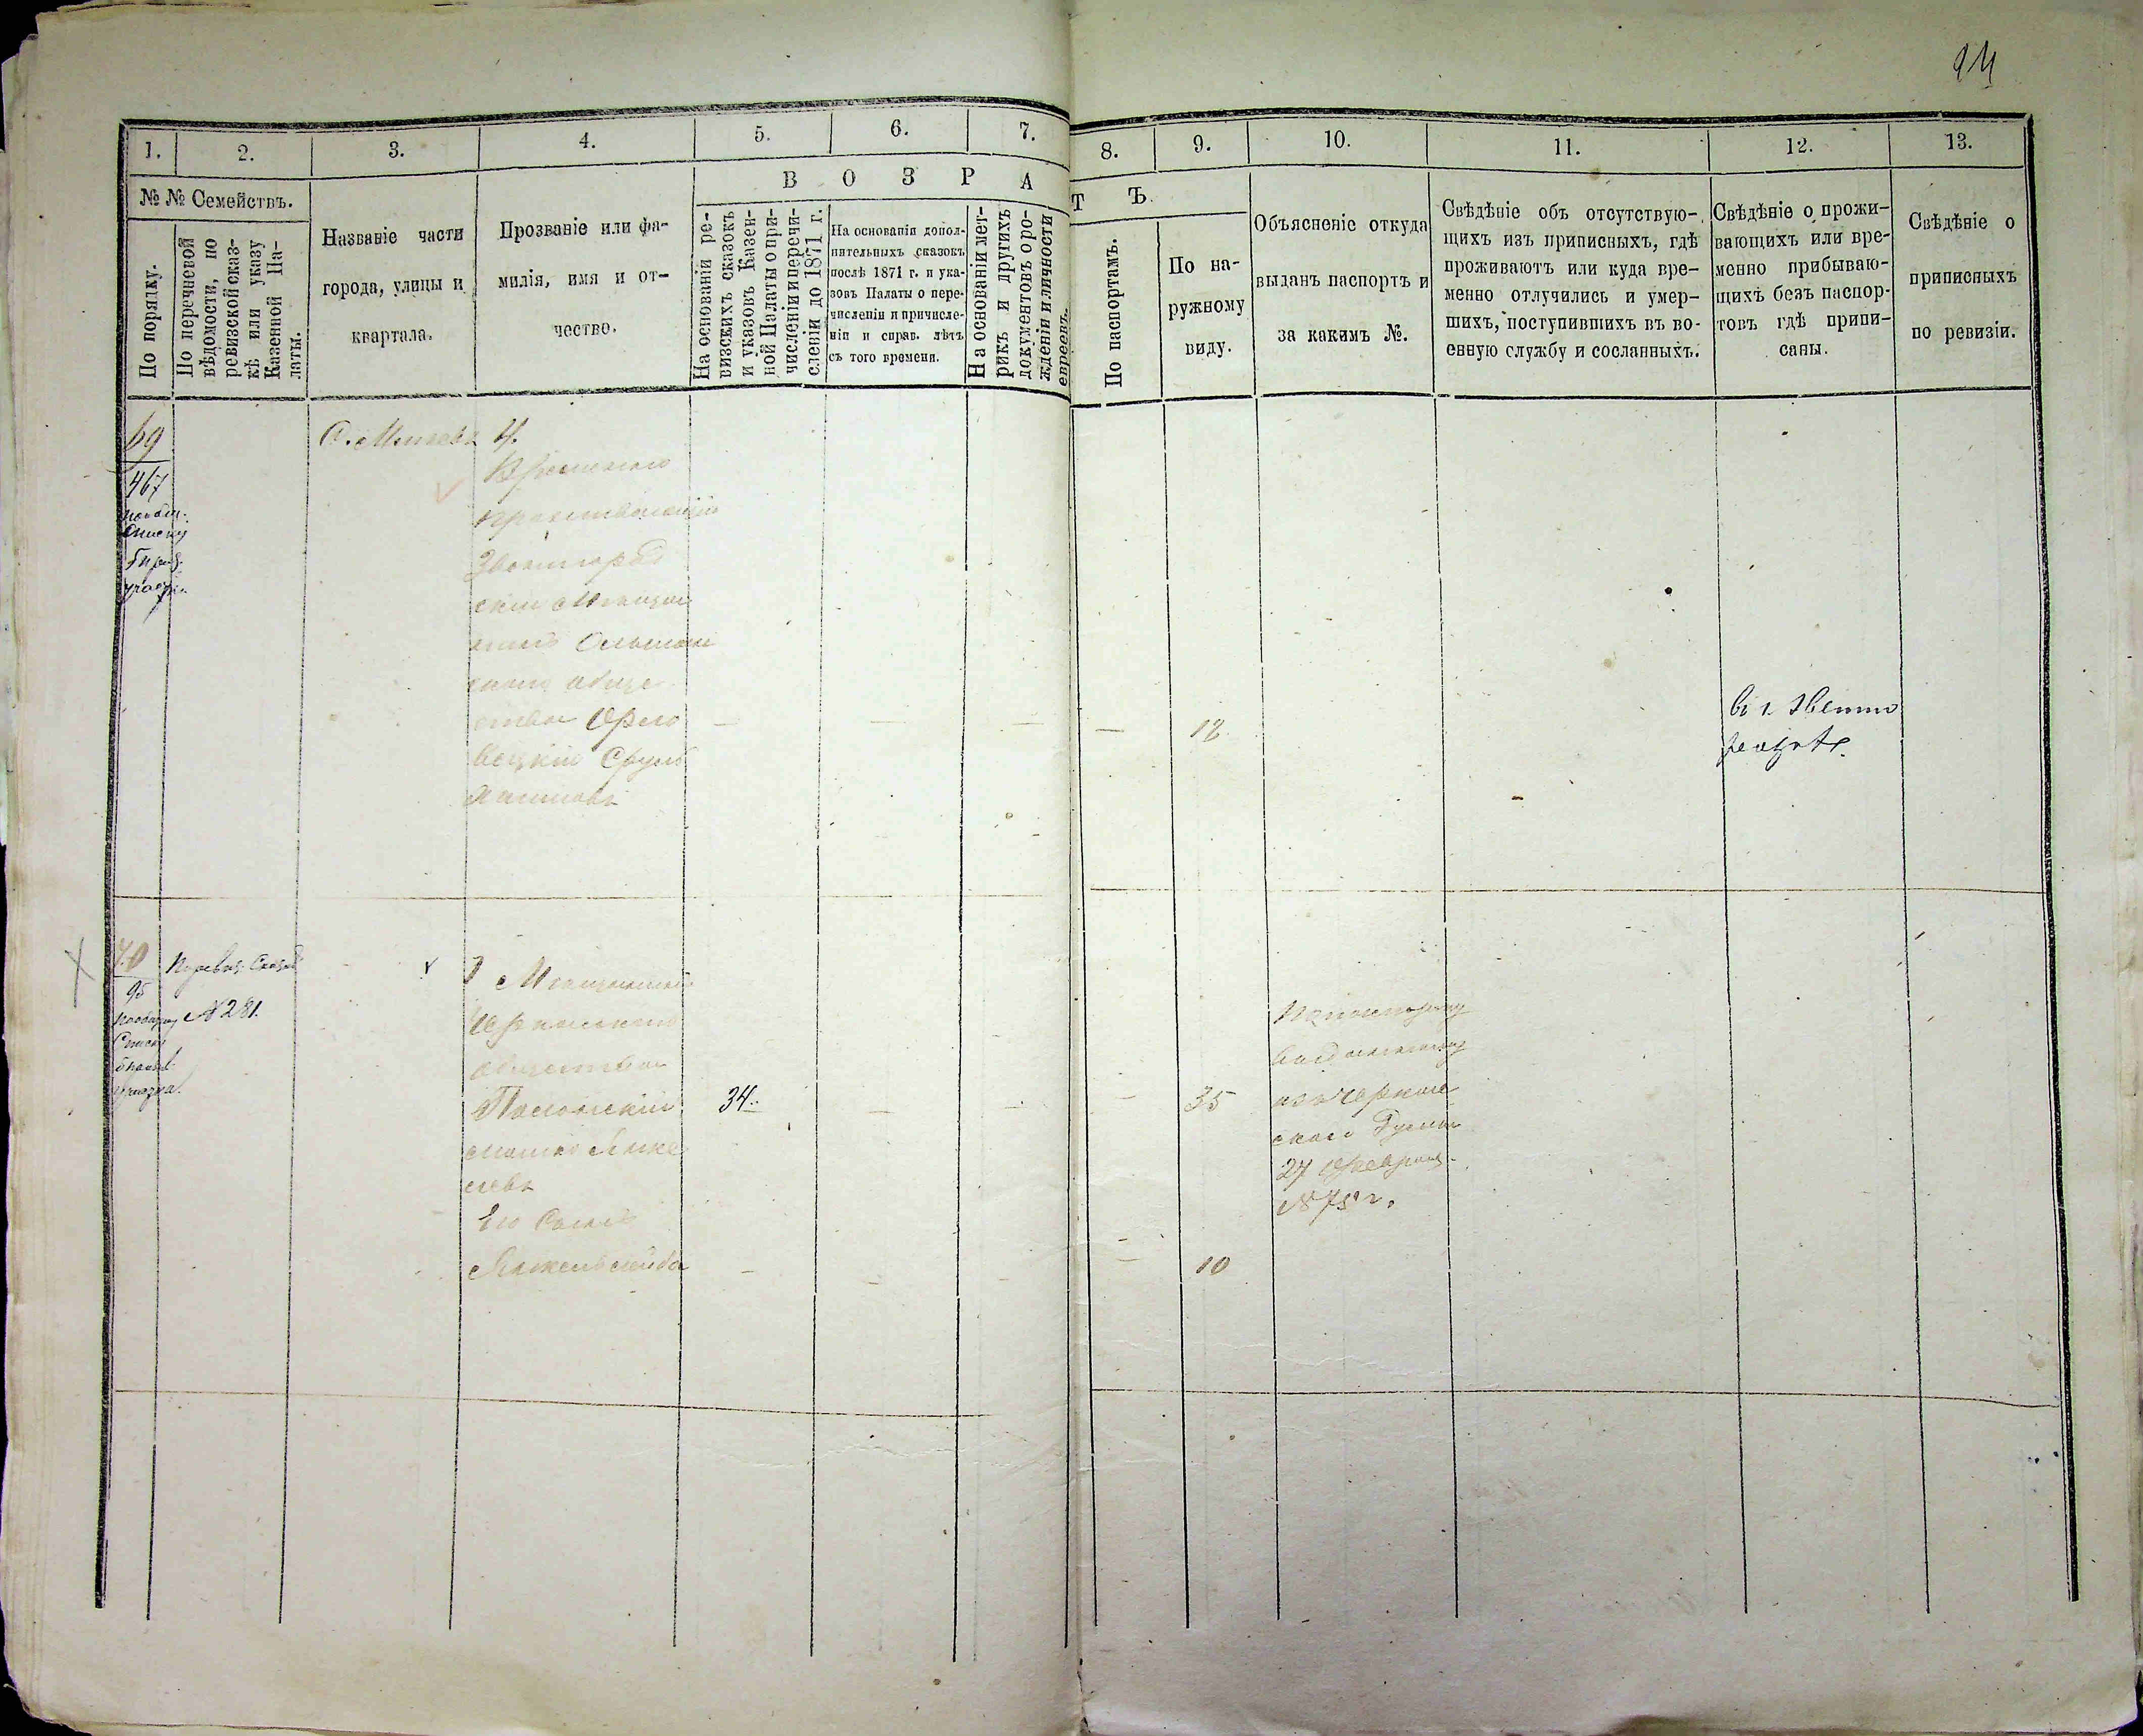 94
1.
2.
3.
4.
5.
6.
7.
8.
9.
10.
11.
12.
13.
№ № Семействъ.
По порядку.
По перечневой
вѣдомости, по
ревизской сказ-
кѣ или указу
Казенной Па-
латы.
Названіе части
города, улицы и
квартала.
Прозваніе или фа-
милія, имя и от-
чество.
В О З Р А
Т Ъ.
На основаніи ре-
визскихъ сказокъ
и указовъ Казен-
ной Палаты о при-
численіи и перечи-
сленіи до 1871 г.
На основаніи допол-
нительныхъ сказокъ
послѣ 1871 г. и ука-
зовъ Палаты о пере-
численіи и причисле-
ніи и справ. лѣтъ
съ того времени.
На основаніи мет-
рикъ и другихъ
документовъ о ро-
жденіи и личности
евреевъ.
По паспортамъ.
По на-
ружному
виду.
Объясненіе откуда
выданъ паспортъ и
за какимъ №.
Свѣдѣніе объ отсутствую-
щихъ изъ приписныхъ, гдѣ
проживаютъ или куда вре-
менно отлучились и умер-
шихъ, поступившихъ въ во-
енную службу и сосланныхъ.
Свѣдѣніе о прожи-
вающихъ или вре-
менно прибываю-
щихъ безъ паспор-
товъ гдѣ припи-
саны.
Свѣдѣніе о
приписныхъ
по ревизіи.
69
467
участка
Временно
проживающій
Звенигород
скій Мѣщан
нинъ Ольшан
скаго обще
ства Орло
вецкій Сруль
12
въ г. Звенино
70
95
Списку
участка.
По ревиз. Сказкѣ
№ 281.
1 Мѣщанинъ
Черкасскаго
общества
34
35
Его Сынъ
10
По паспорту
выданному
изъ Черкас
ской Думы
27 Февраля
1875 г.